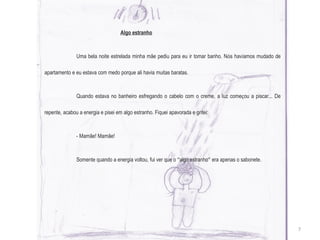 Algo estranho
Uma bela noite estrelada minha mãe pediu para eu ir tomar banho. Nós havíamos mudado de
apartamento e eu estava com medo porque ali havia muitas baratas.
Quando estava no banheiro esfregando o cabelo com o creme, a luz começou a piscar... De
repente, acabou a energia e pisei em algo estranho. Fiquei apavorada e gritei:
- Mamãe! Mamãe!
Somente quando a energia voltou, fui ver que o "algo estranho" era apenas o sabonete.